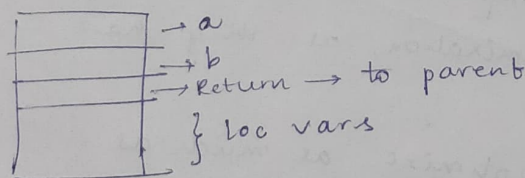 → a
→ b
→ Return → to parent
} loc vars